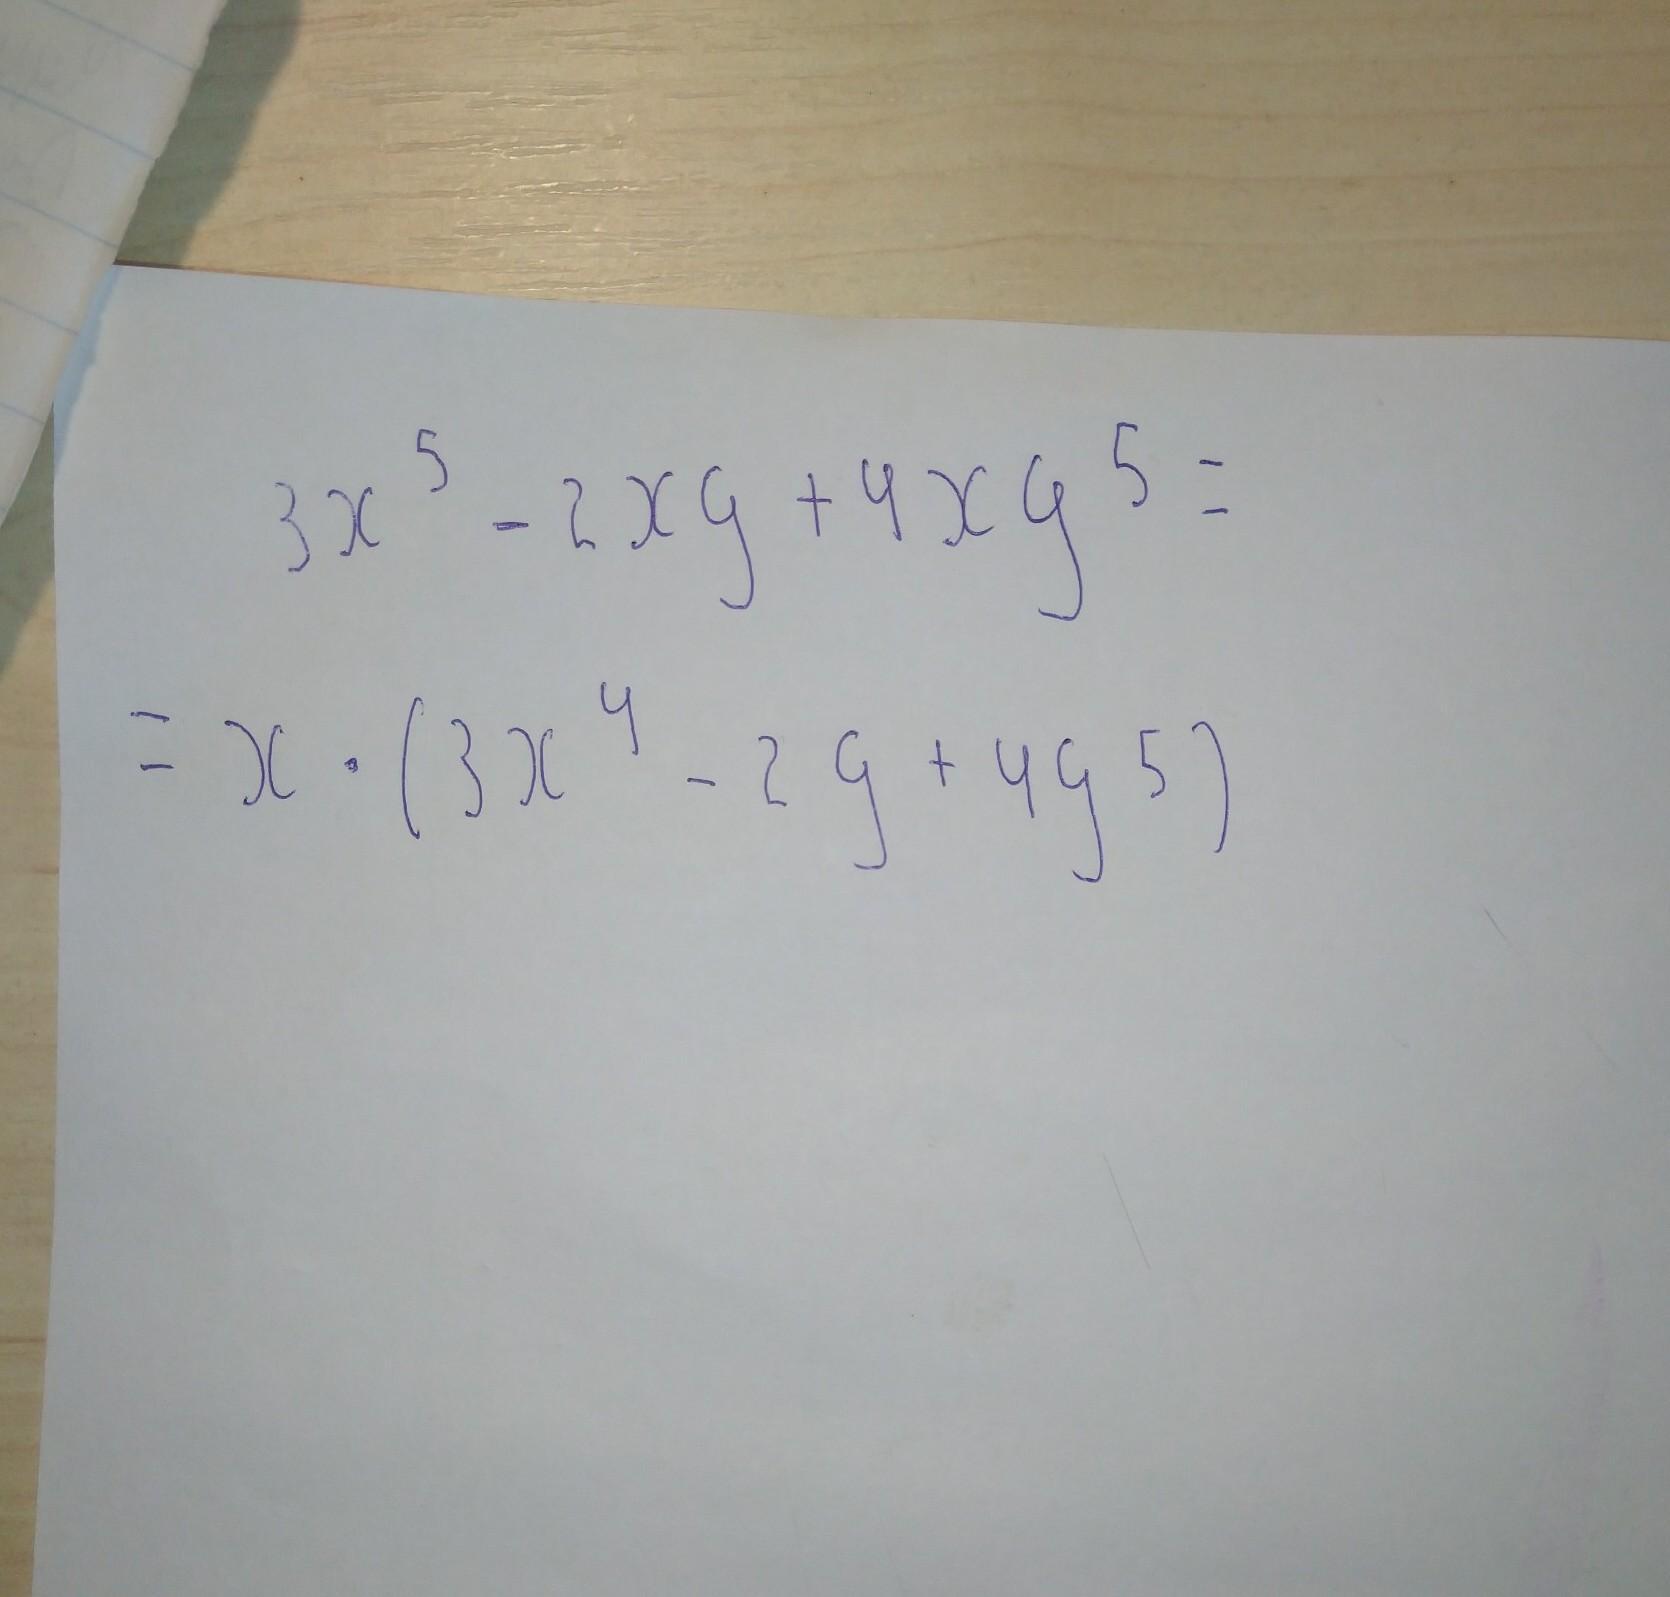 3x⁵ - 2xy + 4xy⁵ =
= x · (3x⁴ - 2y + 4y5)